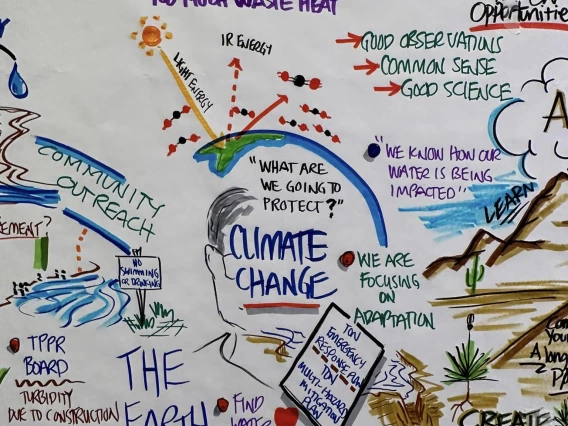 TOO MUCH WASTE HEAT
Opportunities
IR ENERGY
LIGHT ENERGY
→ GOOD OBSERVATIONS
→ COMMON SENSE
→ GOOD SCIENCE
COMMUNITY
OUTREACH
"WHAT ARE
WE GOING TO
PROTECT?"
"WE KNOW HOW OUR
WATER IS BEING
IMPACTED"
LEARN
NO
SWIMMING
OR DRINKING
CLIMATE
CHANGE
WE ARE
FOCUSING
ON
ADAPTATION
TON
EMERGENCY
RESPONSE PLAN
TON
MULTI-HAZARD
MITIGATION
PLAN
TPPR
BOARD
TURBIDITY
DUE TO CONSTRUCTION
THE
EARTH
FIND
WATER
A long
CREATE